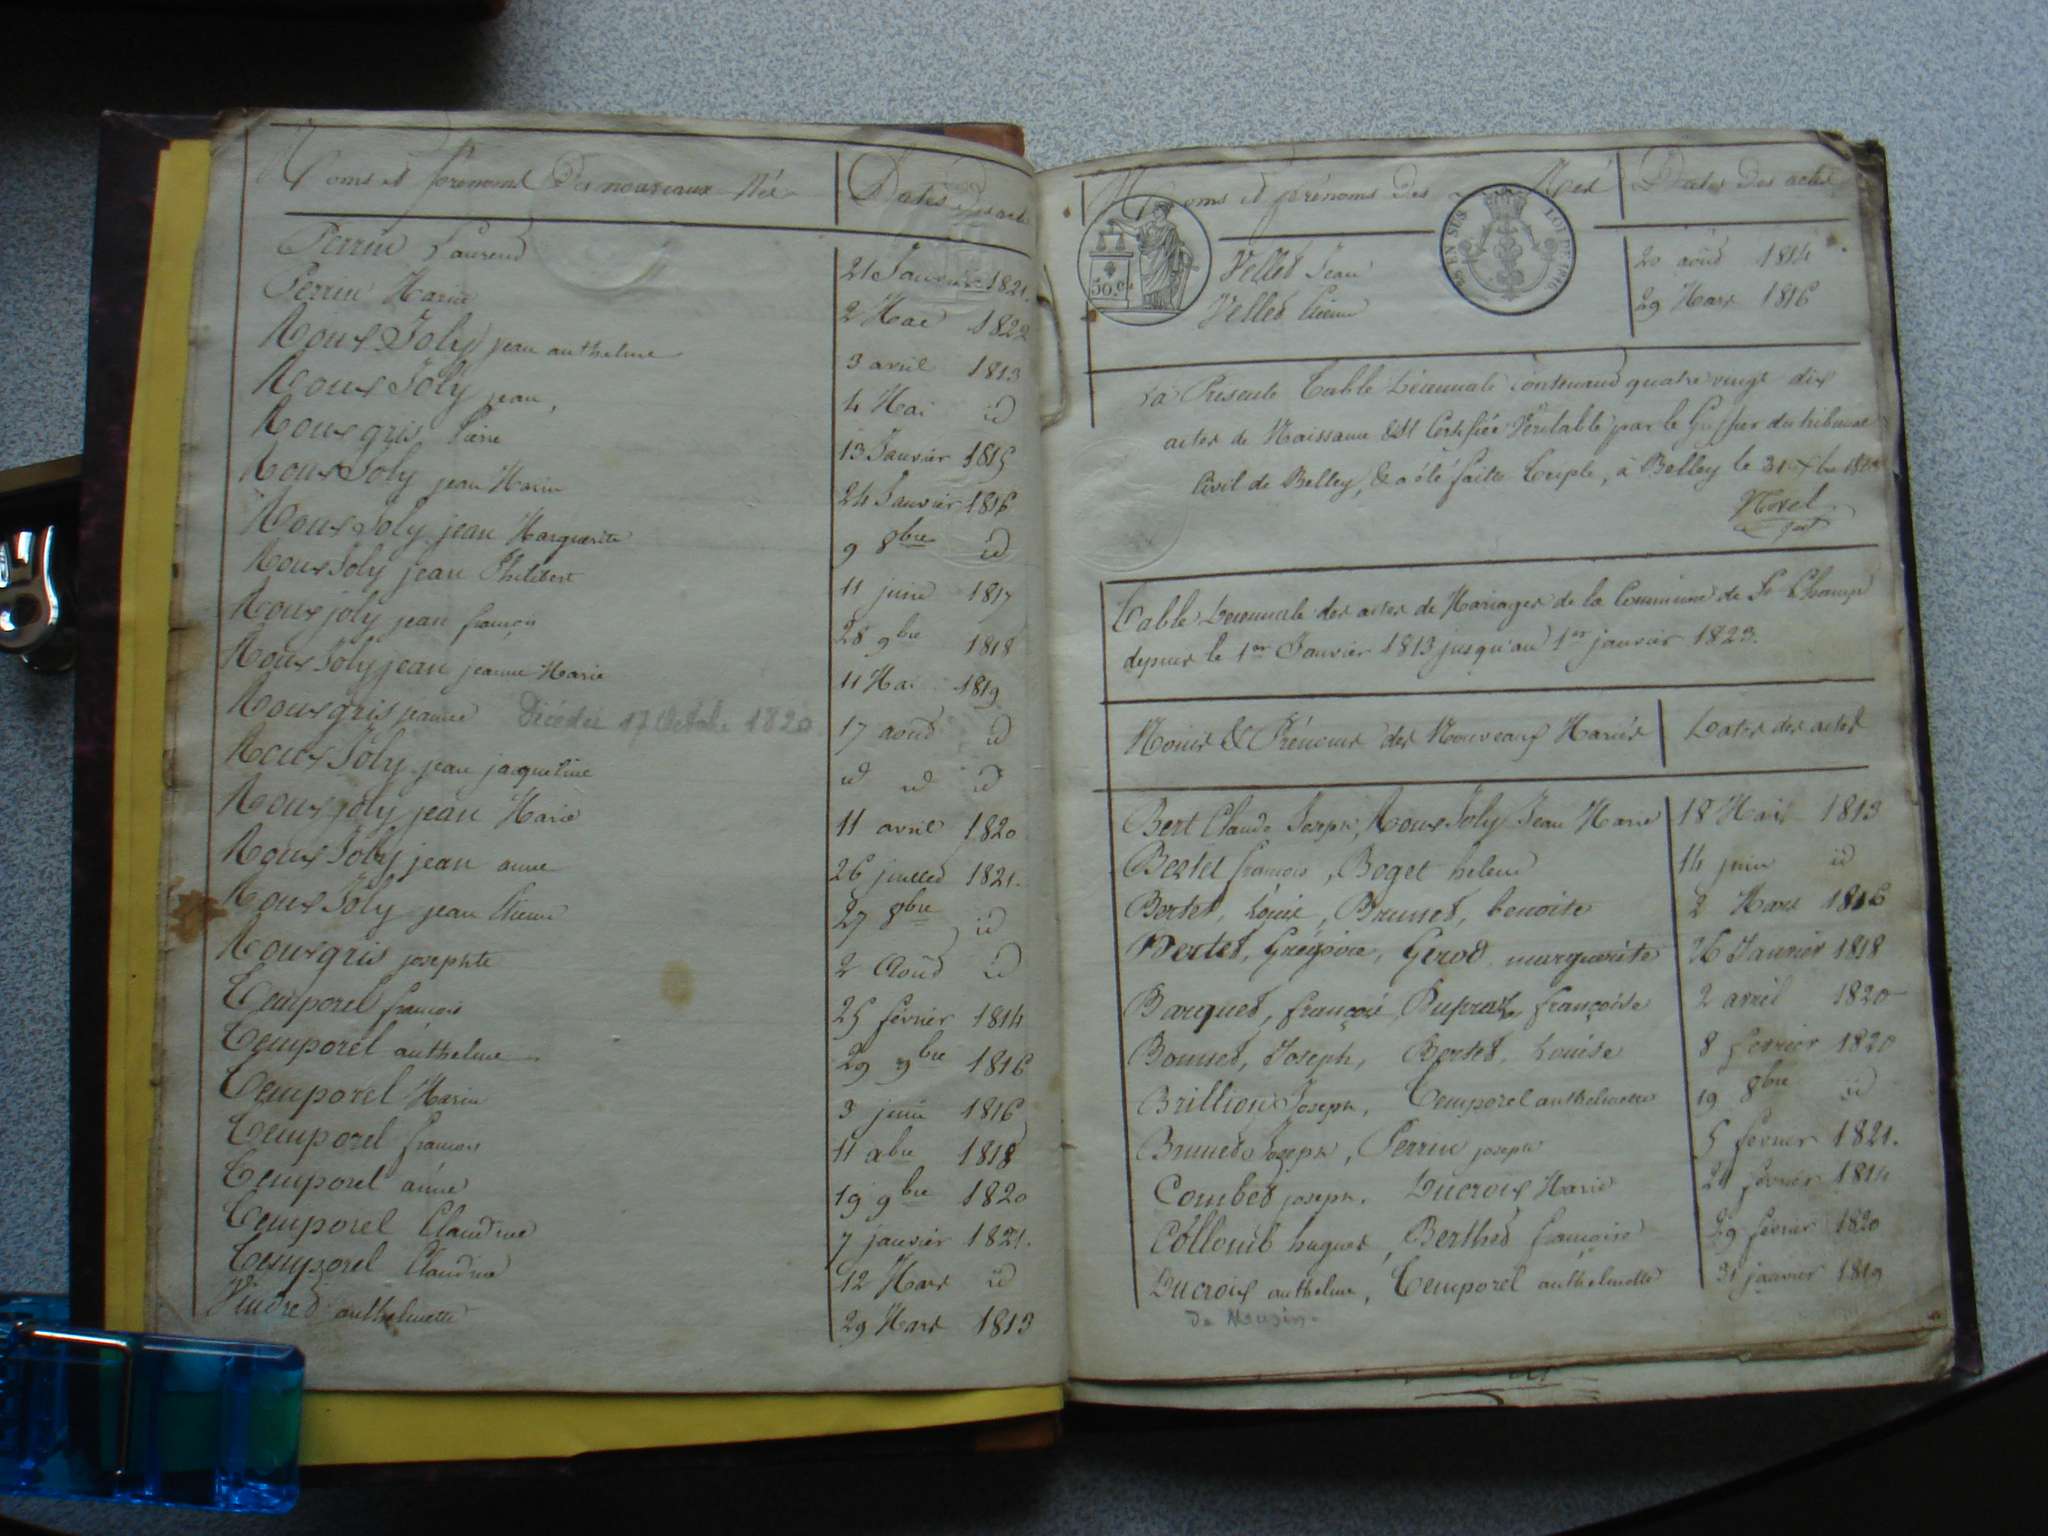 Noms et prénoms des nouveaux Nés Dates des actes
Perrin Laurend 21 Janvier 1821.
Perrin Marie 2 Mai 1822
Roux Joly jean anthelme 3 avril 1813
Roux Joly jean, 4 Mai id
Roux gris Pierre 13 Janvier 1815
Roux Joly jean Marie 24 Janvier 1816
Roux Joly jean Marguerite 9 8bre id
Roux Joly jean Philibert 11 juin 1817
Roux joly jean françois 28 9bre 1818
Roux Joly jean jeanne Marie 11 Mai 1819
Roux gris jeanne Décédée 17 Octobre 1820 17 aoud id
Roux Joly jean jaqueline id id id
Roux joly jean Marie 11 avril 1820
Roux Joly jean anne 26 juilled 1821.
Roux Joly jean Etienne 27 8bre id
Roux gris josephte 2 Aoud id
Temporel françois 25 février 1814
Temporel anthelme 29 9bre 1816
Temporel Marie 3 juin 1816
Temporel françois 11 abre 1818
Temporel anne 19 9bre 1820
Temporel Claudine 7 janvier 1821.
Temporel Claudine 12 Mars id
Vindred anthelmette 29 Mars 1813
Noms et prénoms des Nés Dates des actes
50.c
LOI DE 1816
Velled Jean 20 aoud 1814
Velled Etienne 29 Mars 1816
La Présente Table Décennale contenand quatre vingt dix
actes de Naissance Est Certifiée Véritable par le Greffier du tribunal
Civil de Belley, & a été faite Triple, à Belley le 31
Table Décennale des actes de Mariages de la Commune de St Champ
depuis le 1er Janvier 1813 jusqu'au 1er janvier 1823.
Noms & Prénoms des Nouveaux Mariés Dates des actes
Bert Claude Joseph, Roux Joly Jean Marie 18 Mars 1813
Bertet françois, Boget helene 14 juin id
Bertet, Louis, Brunet, benoite 2 Mars 1816
Bertet, Grégoire, Girod marguerite 26 Janvier 1818
Barquet, françois, Dupraz françoise 2 avril 1820
Bonnet, Joseph, Bertet, Louise 8 fevrier 1820
Brillion Joseph, Temporel anthelmette 19 8bre id
Brunet Joseph, Perrin joseph 5 fevrier 1821.
Combet joseph. Ducroix Marie 21 février 1814
Collomb hugues, Berthet françoise 29 février 1820
Ducroix anthelme, Temporel anthelmette 31 janvier 1819